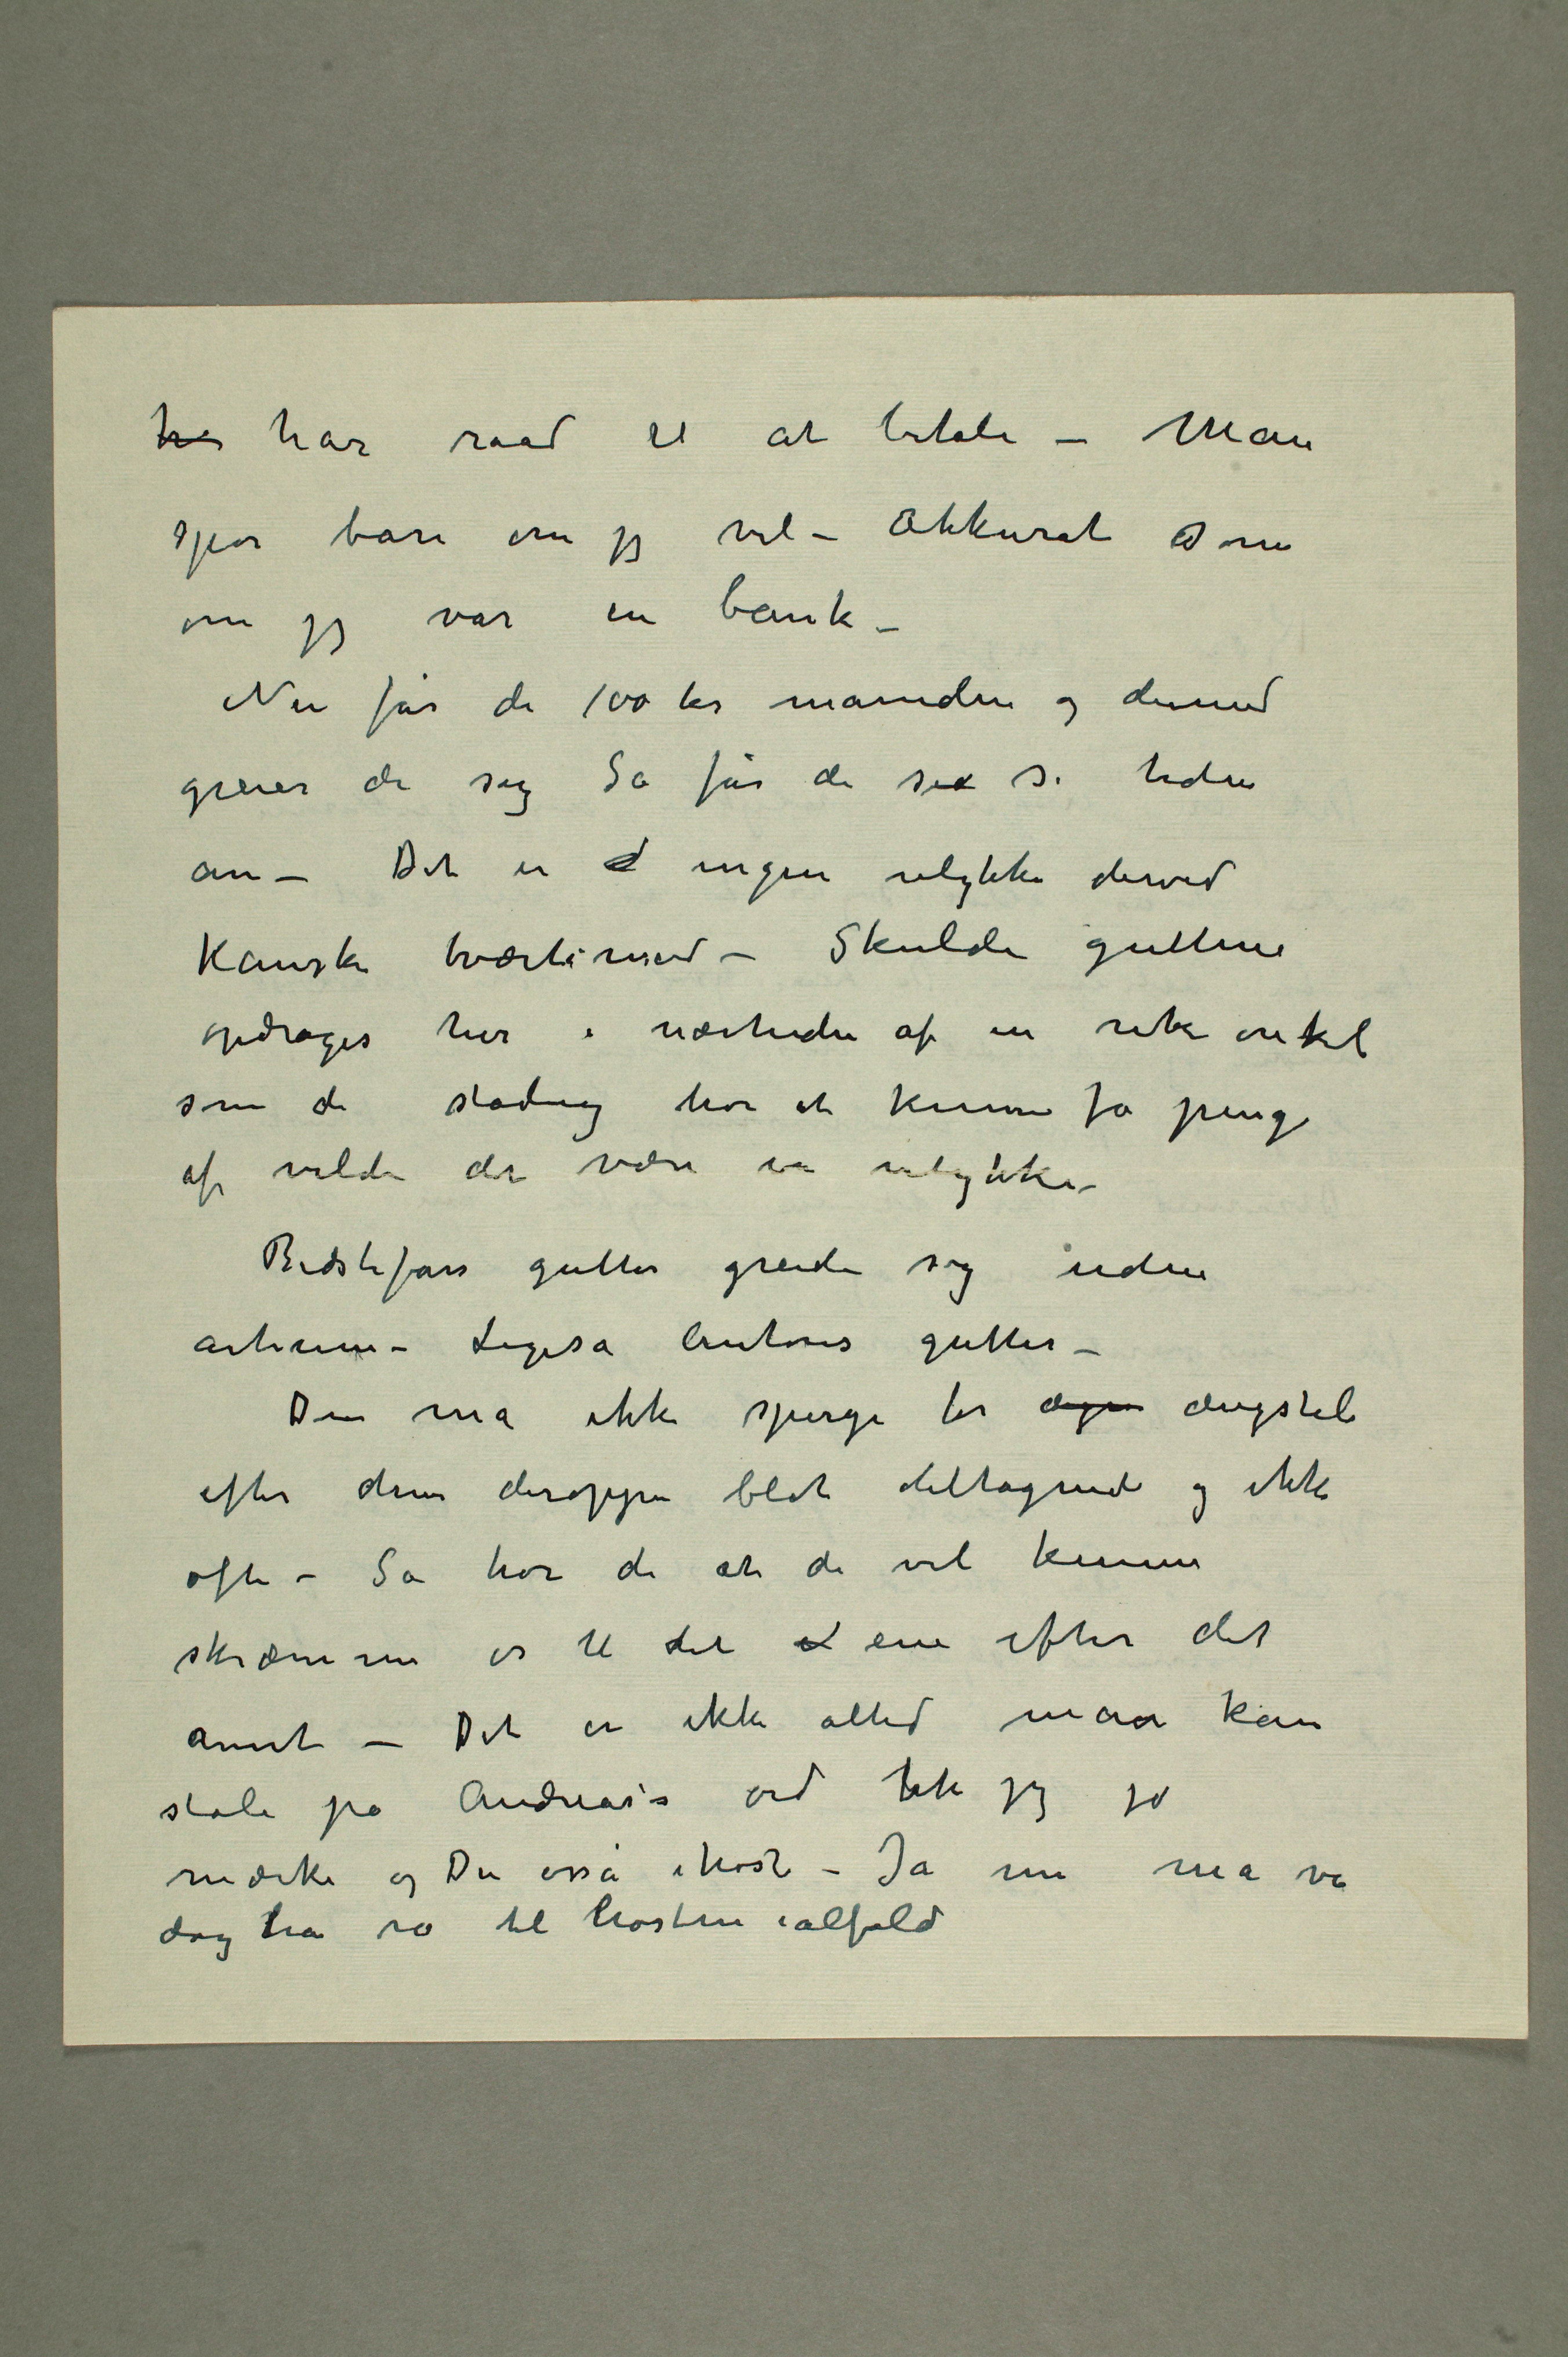 har raad til at betale – Man
spør bare om jeg vil – Akkurat som
om jeg var en bank –
Nu får de 100 kr måneden og dermed
greier de sig Så får de se tiden
an – Det er ingen ulykke derved
Kanske tværtimod – Skulde guttene
opdrages her i nærheden af en rik onkel
som de stadig tror at kunne få penge
af vilde det være en ulykke –
Bedstefars gutter greide sig uden
artium – Ligeså Antons gutter –
Du må ikke spørge for ængstelig
efter dem deroppe blot deltagende og ikke
ofte – Så tror de at de vil kunne
skræmme os til det ene efter det
annet – Det er ikke altid man kan
stole på Andreas's ord fik jeg jo
mærke og Du også ihøst – Ja nu må vi
dog ha ro til høsten ialfald